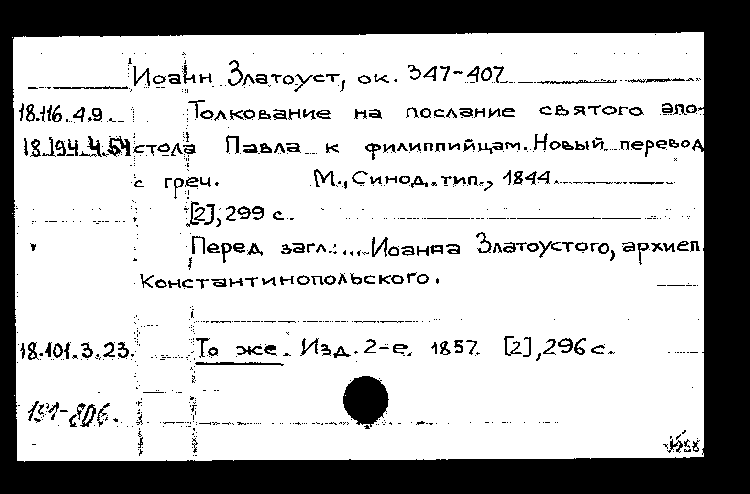 Иоанн Златоуст, ок. 347-407
18.116.4.9. Толкование на послание святого апо-
18.194.4.54 стола Павла к филиппийцам. Новый перевод
с греч. М., Синод. тип., 1844.
[2], 299 с.
Перед загл.: ... Иоанна Златоустого, архиеп.
Константинопольского.
18.101.3.23. То же. Изд. 2-е. 1857. [2], 296 с.
131-806.